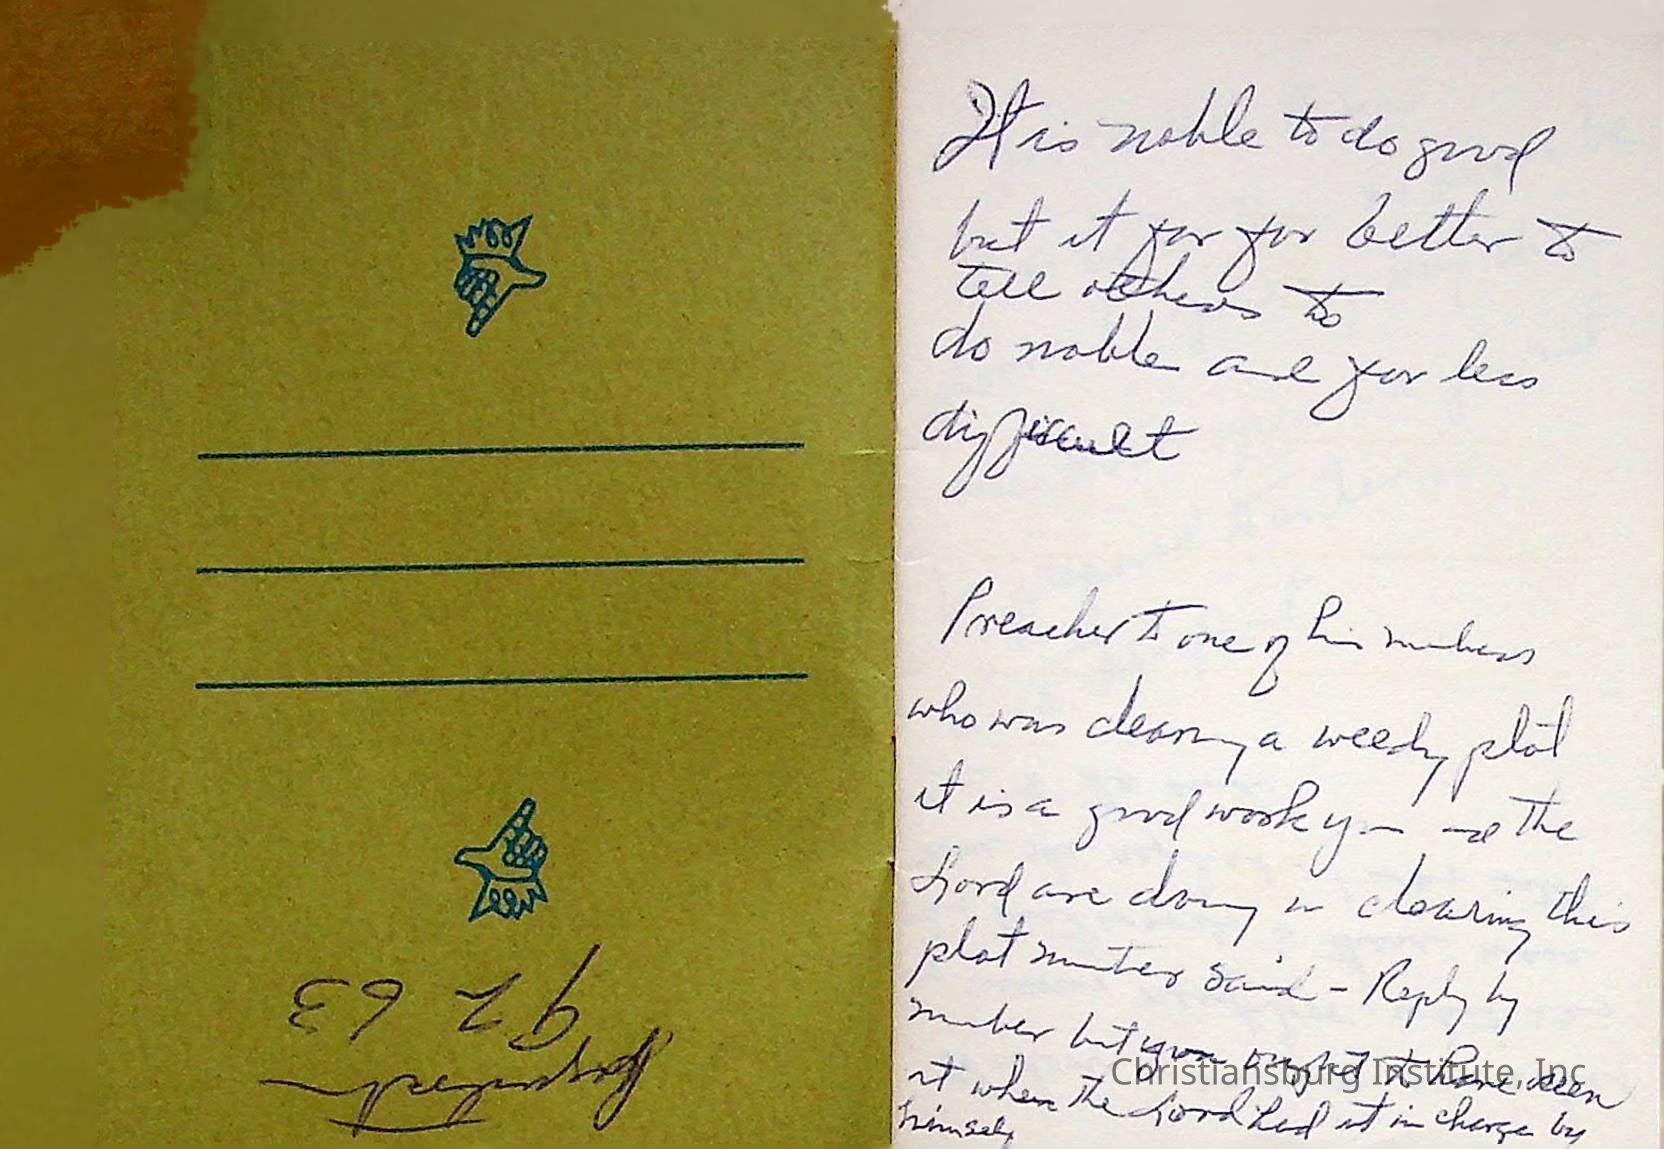 It is noble to do good
but it far far better to
tell others to
do noble and far less
difficult
Preacher to one of his members
who was cleaning a weedy plot
it is a good work you and the
Lord are doing in clearing this
plot minister said - Reply by
member but you ought to have seen
it when the Lord had it in charge by
himself
92 63
Christiansburg Institute, Inc